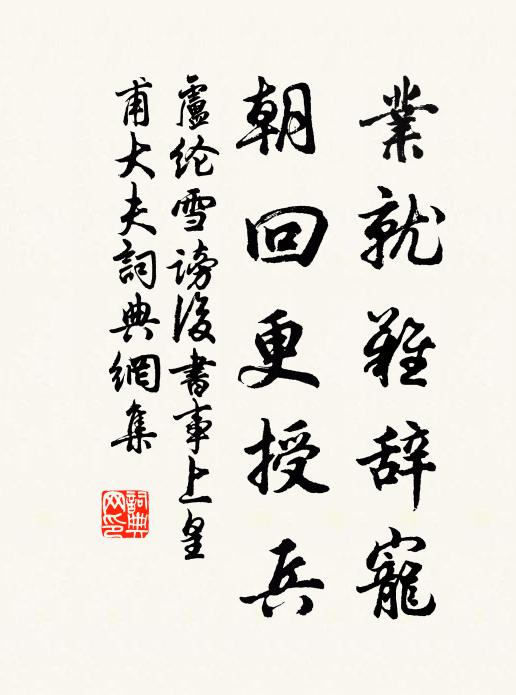 業就難辞寵
朝回更授兵
盧纶雪謗後書事上皇
甫大夫詞典網集
詞典
网印